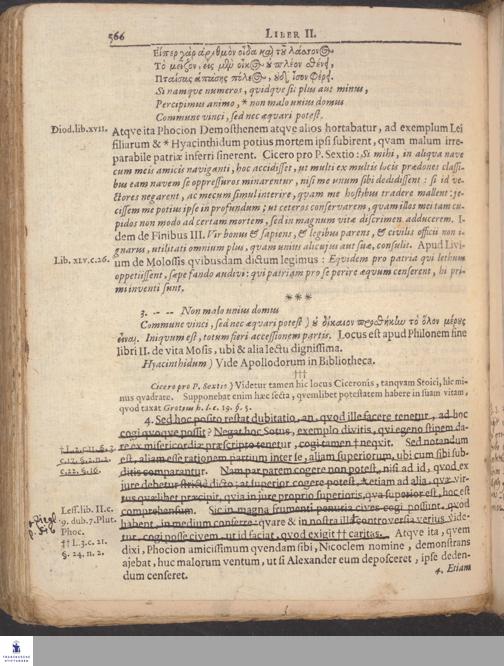 566 LIBER II.
Εἴπερ γὰρ ἀριθμὸν οἶδα καὶ τοὐλάσσονος
Τὸ μεῖζον, εἷς μὲν οἶκος οὐ πλέον σθένει,
Πταίσας ἁπάσης πόλεως, οὐδ' ἴσον φέρει.
Si namque numeros, quidque sit plus aut minus,
Percipimus animo, * non malo unius domus
Commune vinci, sed nec æquari potest.
Diod. lib. xvii.
Atqve ita Phocion Demosthenem atqve alios hortabatur, ad exemplum Lei
filiarum & * Hyacinthidum potius mortem ipsi subirent, qvam malum irre-
parabile patriæ inferri sinerent. Cicero pro P. Sextio: Si mihi, in aliqva nave
cum meis amicis naviganti, hoc accidisset, ut multi ex multis locis prædones classi-
bus eam navem se oppressuros minarentur, nisi me unum sibi dedidissent: si id ve-
ctores negarent, ac mecum simul interire, qvam me hostibus tradere mallent: je-
cissem me potius ipse in profundum; ut ceteros conservarem, qvam illos mei tam cu-
pidos non modo ad certam mortem, sed in magnum vitæ discrimen adducerem. I-
dem de Finibus III. Vir bonus & sapiens, & legibus parens, & civilis officii non i-
gnarus, utilitati omnium plus, qvam unius alicujus aut suæ, consulit. Apud Livi-
Lib. XLV. c. 26.
um de Molossis qvibusdam dictum legimus: Eqvidem pro patria qvi lethum
oppetiissent, sæpe fando audivi: qvi patriam pro se perire æqvum censerent, hi pri-
mi inventi sunt.
***
3. -- -- Non malo unius domus
Commune vinci, sed nec æquari potest) οὐ δίκαιον
Iniqvum est, totum fieri accessionem partis. Locus est apud Philonem fine
libri II. de vita Mosis, ubi & alia lectu dignissima.
Hyacinthidum) Vide Apollodorum in Bibliotheca.
†††
Cicero pro P. Sextio) Videtur tamen hic locus Ciceronis, tanqvam Stoici, hic mi-
nus quadrate. Supponebat enim hæc secta, qvemlibet potestatem habere in suam vitam,
qvod taxat Grotius h. l. c. 19. §. 5.
4. Sed hoc posito restat dubitatio, an, qvod ille facere tenetur, ad hoc
cogi qvoque possit? Negat hoc Sotus, exemplo divitis, qvi egeno stipem da-
re ex misericordiæ præscripto tenetur, cogi tamen † neqvit. Sed notandum
est, aliam esse rationem partium inter se, aliam superiorum, ubi cum sibi sub-
ditis comparantur. Nam par parem cogere non potest, nisi ad id, qvod ex
jure debetur stricte dicto; at superior cogere potest, & etiam ad alia, qvæ vir-
tus qvælibet præcipit, qvia in jure proprio superioris, qva superior est, hoc est
comprehensum. Sic in magna frumenti penuria cives cogi possunt, qvod
Less. lib. II. c.
9. dub. 7. Plut.
Phoc.
habent, in medium conferre: qvare & in nostra illa controversia verius vide-
tur, cogi posse civem, ut id faciat, qvod exigit †† caritas. Atqve ita, qvem
†† L. 3. c. 21.
§. 24. n. 2.
dixi, Phocion amicissimum qvendam sibi, Nicoclem nomine, demonstrans
ajebat, huc malorum ventum, ut si Alexander eum deposceret, ipse deden-
dum censeret.
4. Etiam